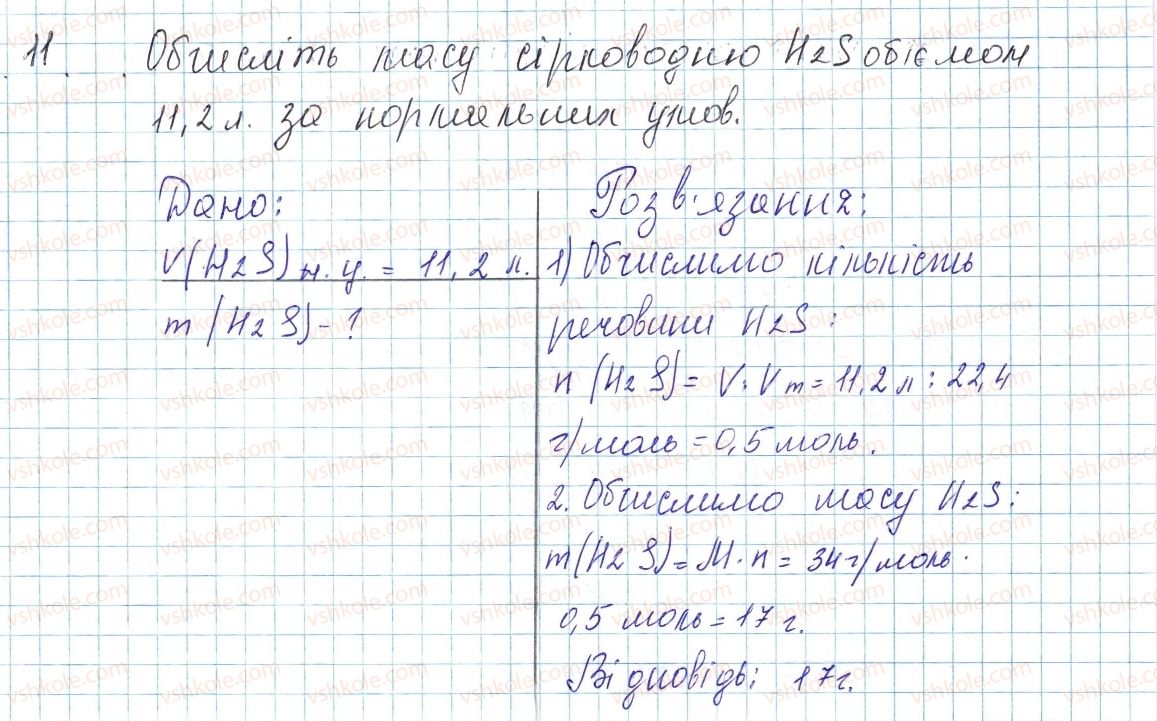 11. Обчисліть масу сірководню H2S обіємом
11,2 л. за нормальних умов.
Дано:
V(H2S) н.у. = 11,2 л.
m(H2S) - ?
Розв'язання:
1) Обчислимо кількість
речовини H2S:
n(H2S) = V : Vm = 11,2 л : 22,4
г/моль = 0,5 моль.
2. Обчислимо масу H2S:
m(H2S) = M · n = 34 г/моль ·
0,5 моль = 17 г.
Відповідь: 17 г.
vshkole.com